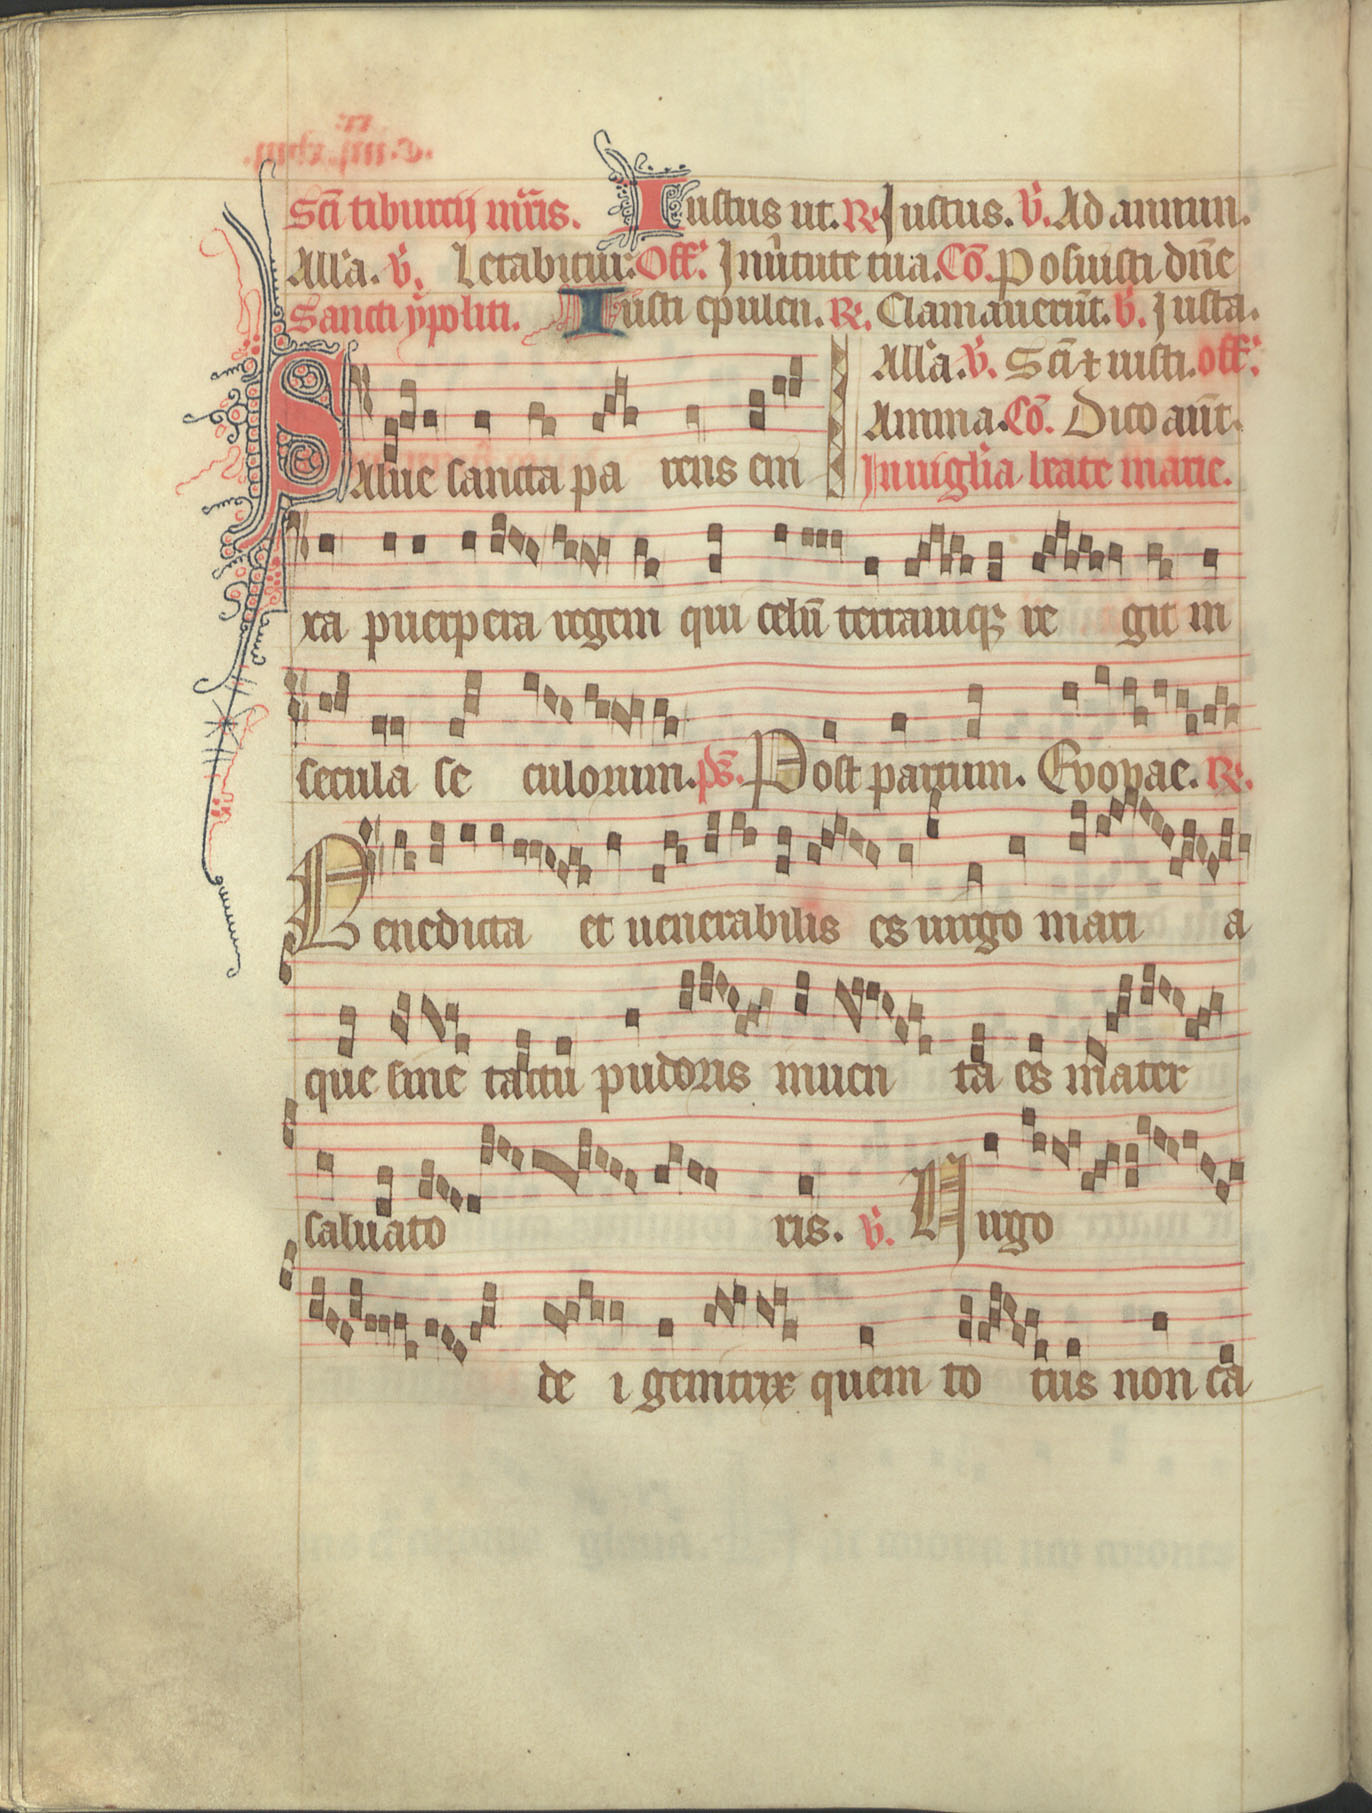 Sc̄i tiburcij mr̄is. Iustus ut. R̃. Justus. v̄. Ad annun.
All'a. v̄. Letabitur. Off'. In uirtute tua. Cō. Posuisti dn̄e
Sancti ypoliti. Iusti epulen. R̃. Clamauerūt. v̄. Justa.
All'a. v̄. Sc̄i t iusti. off'.
Anima. Cō. Dico aūt.
In uigl'ia beate marie.
Salue sancta pa rens eni
xa puerpera regem qui celū terramq; re git in
secula se culorum. ps̄. Post partum. Evovae. R̃.
Benedicta et uenerabilis es uirgo mari a
que sine tactu pudoris inuen ta es mater
saluato ris. v̄. Uirgo
de i genitrix quem to tus non ca